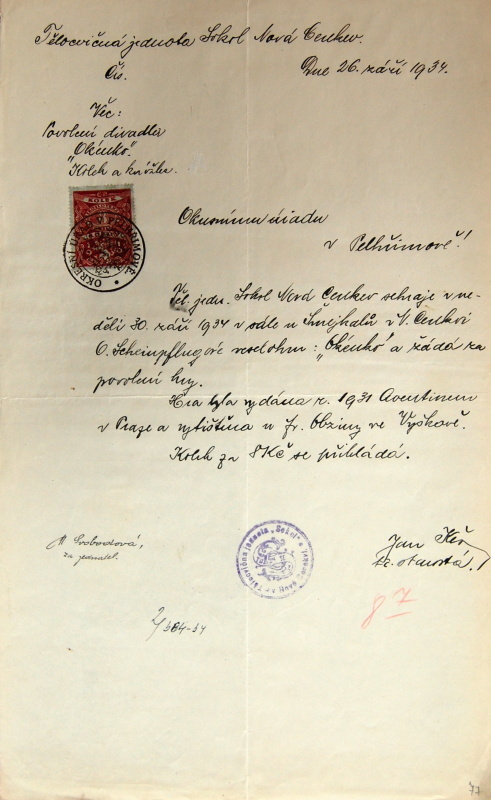 Tělocvičná jednota Sokol Nová Cerekev.
Čís.
Dne 26. září 1934.
Věc:
Povolení divadla
"Okénko".
Kolek a knížka.
KOLEK
OKRESNÍ ÚŘAD V PELHŘIMOVĚ
Okresnímu úřadu
v Pelhřimově!
Těl. jedn. Sokol Nová Cerekev sehraje v ne-
děli 30. září 1934 v sále u Šnejkalů v N. Cerekvi
O. Scheinpflugové veselohru: "Okénko" a žádá za
povolení hry.
Hra byla vydána r. 1931 Aventinem
v Praze a vytištěna u fr. Obziny ve Vyškově.
Kolek za 8Kč se přikládá.
Svobodová,
za jednatel.
Tělocvičná jednota "Sokol"
v Nové
Jan
starosta.
87
584-34
77